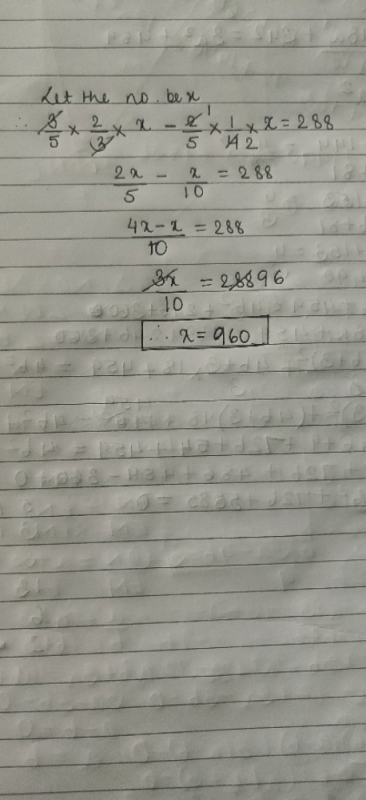 Let the no. be x
∴ 3/5 × 2/3 × x − 2/5 1 × 1/4 2 × x = 288
2x/5 − x/10 = 288
4x − x/10 = 288
3x/10 = 288 96
∴ x = 960